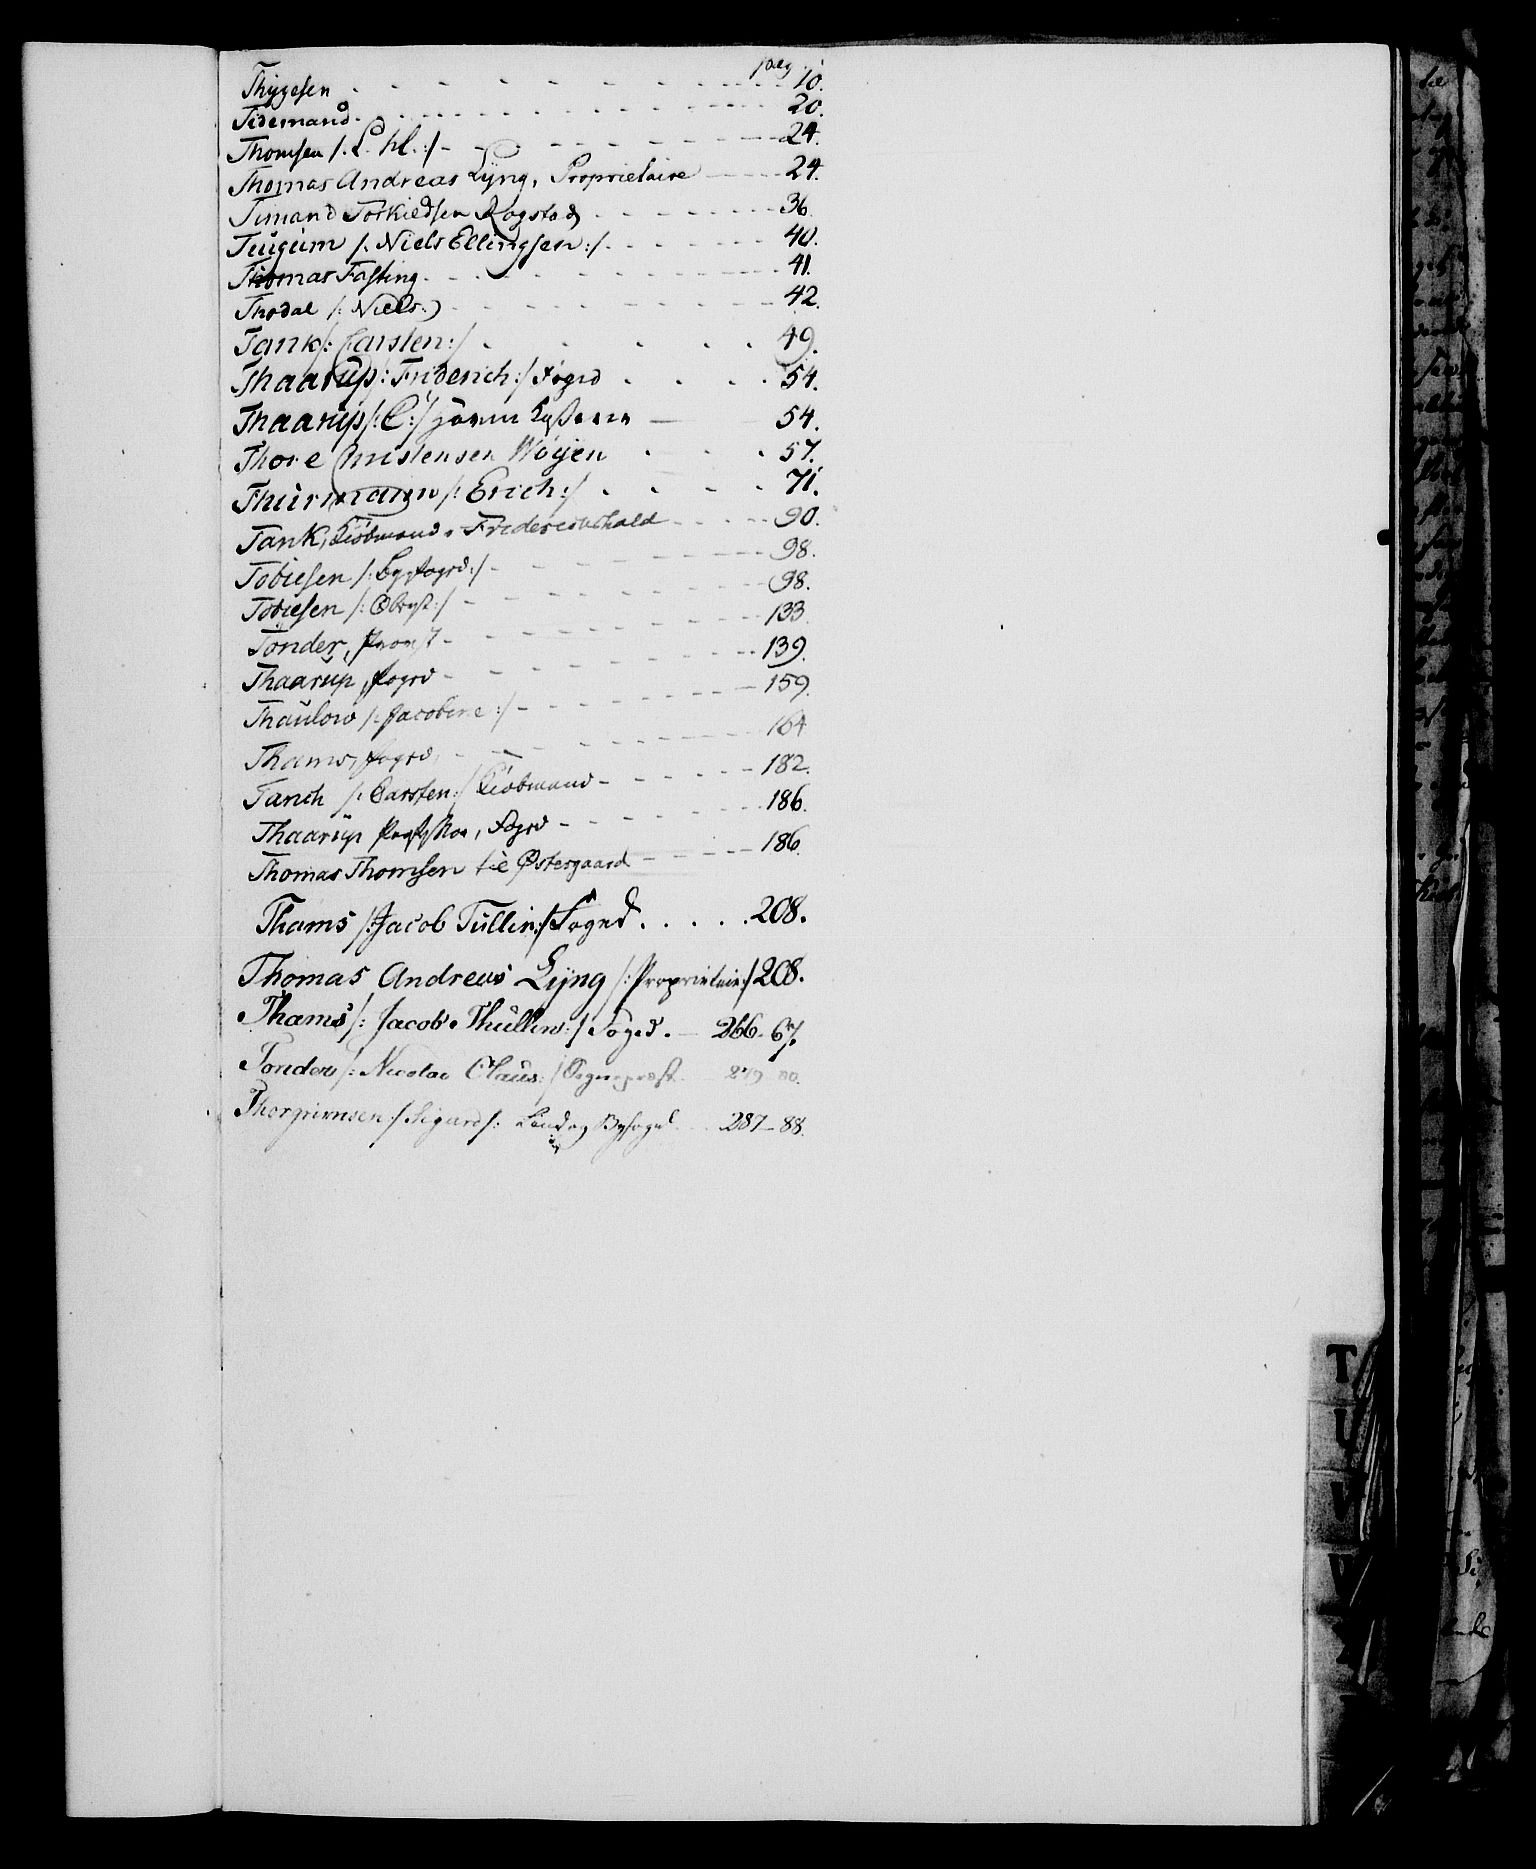 pag:
Thygesen - - - - - - - - 10.
Tidemand - - - - - - - - 20.
Thomsen /: P. hl. :/ - - - - - - 24.
Thomas Andreas Lÿng, Proprietaire - - 24.
Timand Torkiedsen Rogstad - - - - 36.
Teügüm /: Niels Ellingsen :/ - - - - 40.
Thomas Fasting - - - - - - 41.
Thodal /: Niels :) - - - - - - 42.
Tank /: Carsten :/ . . . . . 49.
Thaarüp /: Friderich :/ Foged . . . . 54.
Thaarüp /: C :/ 54.
Thore Christensen Wøÿen . . . 57.
Thürmann /: Erich :/ . . . . 71.
Tank, Kiøbmand, Fridericshald - - - - 90.
Tobiesen /: Byefoged :/ - - - - - 98.
Tobiesen /: Obrist :/ - - - - - 98.
Tønder, Provst - - - - - - 133.
Thaarüp, Foged - - - - - - 139.
Thaülow /: Jacobine :/ - - - - - 159.
Thams, Foged, - - - - - - 164
Tanch /: Carsten :/ Kiøbmand - - - - 182.
Thaarüp Foged - - - - 186.
Thomas Thomsen til Østergaard - - - 186.
Thams /: Jacob Tüllin :/ Foged . . . . 208.
Thomas Andreas Lÿng /: Proprietair :/ 208.
Thams /: Jacob Thüllin :/ Foged. — 266. 67.
Tonder /: Nicolai Claüs :/ Sognepræst. 279 80.
Thorgrimsen :/ Sigurd /: Land og Byfoged. 287-88.
T
U
V
W